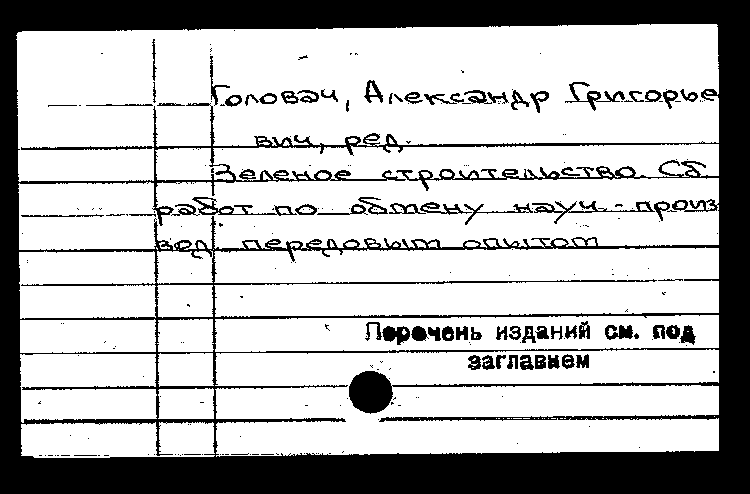 Головач, Александр Григорье
вич, ред.
Зеленое строительство. Сб
работ по обмену науч.-произ
вед. передовым опытом
Перечень изданий см. под
заглавием